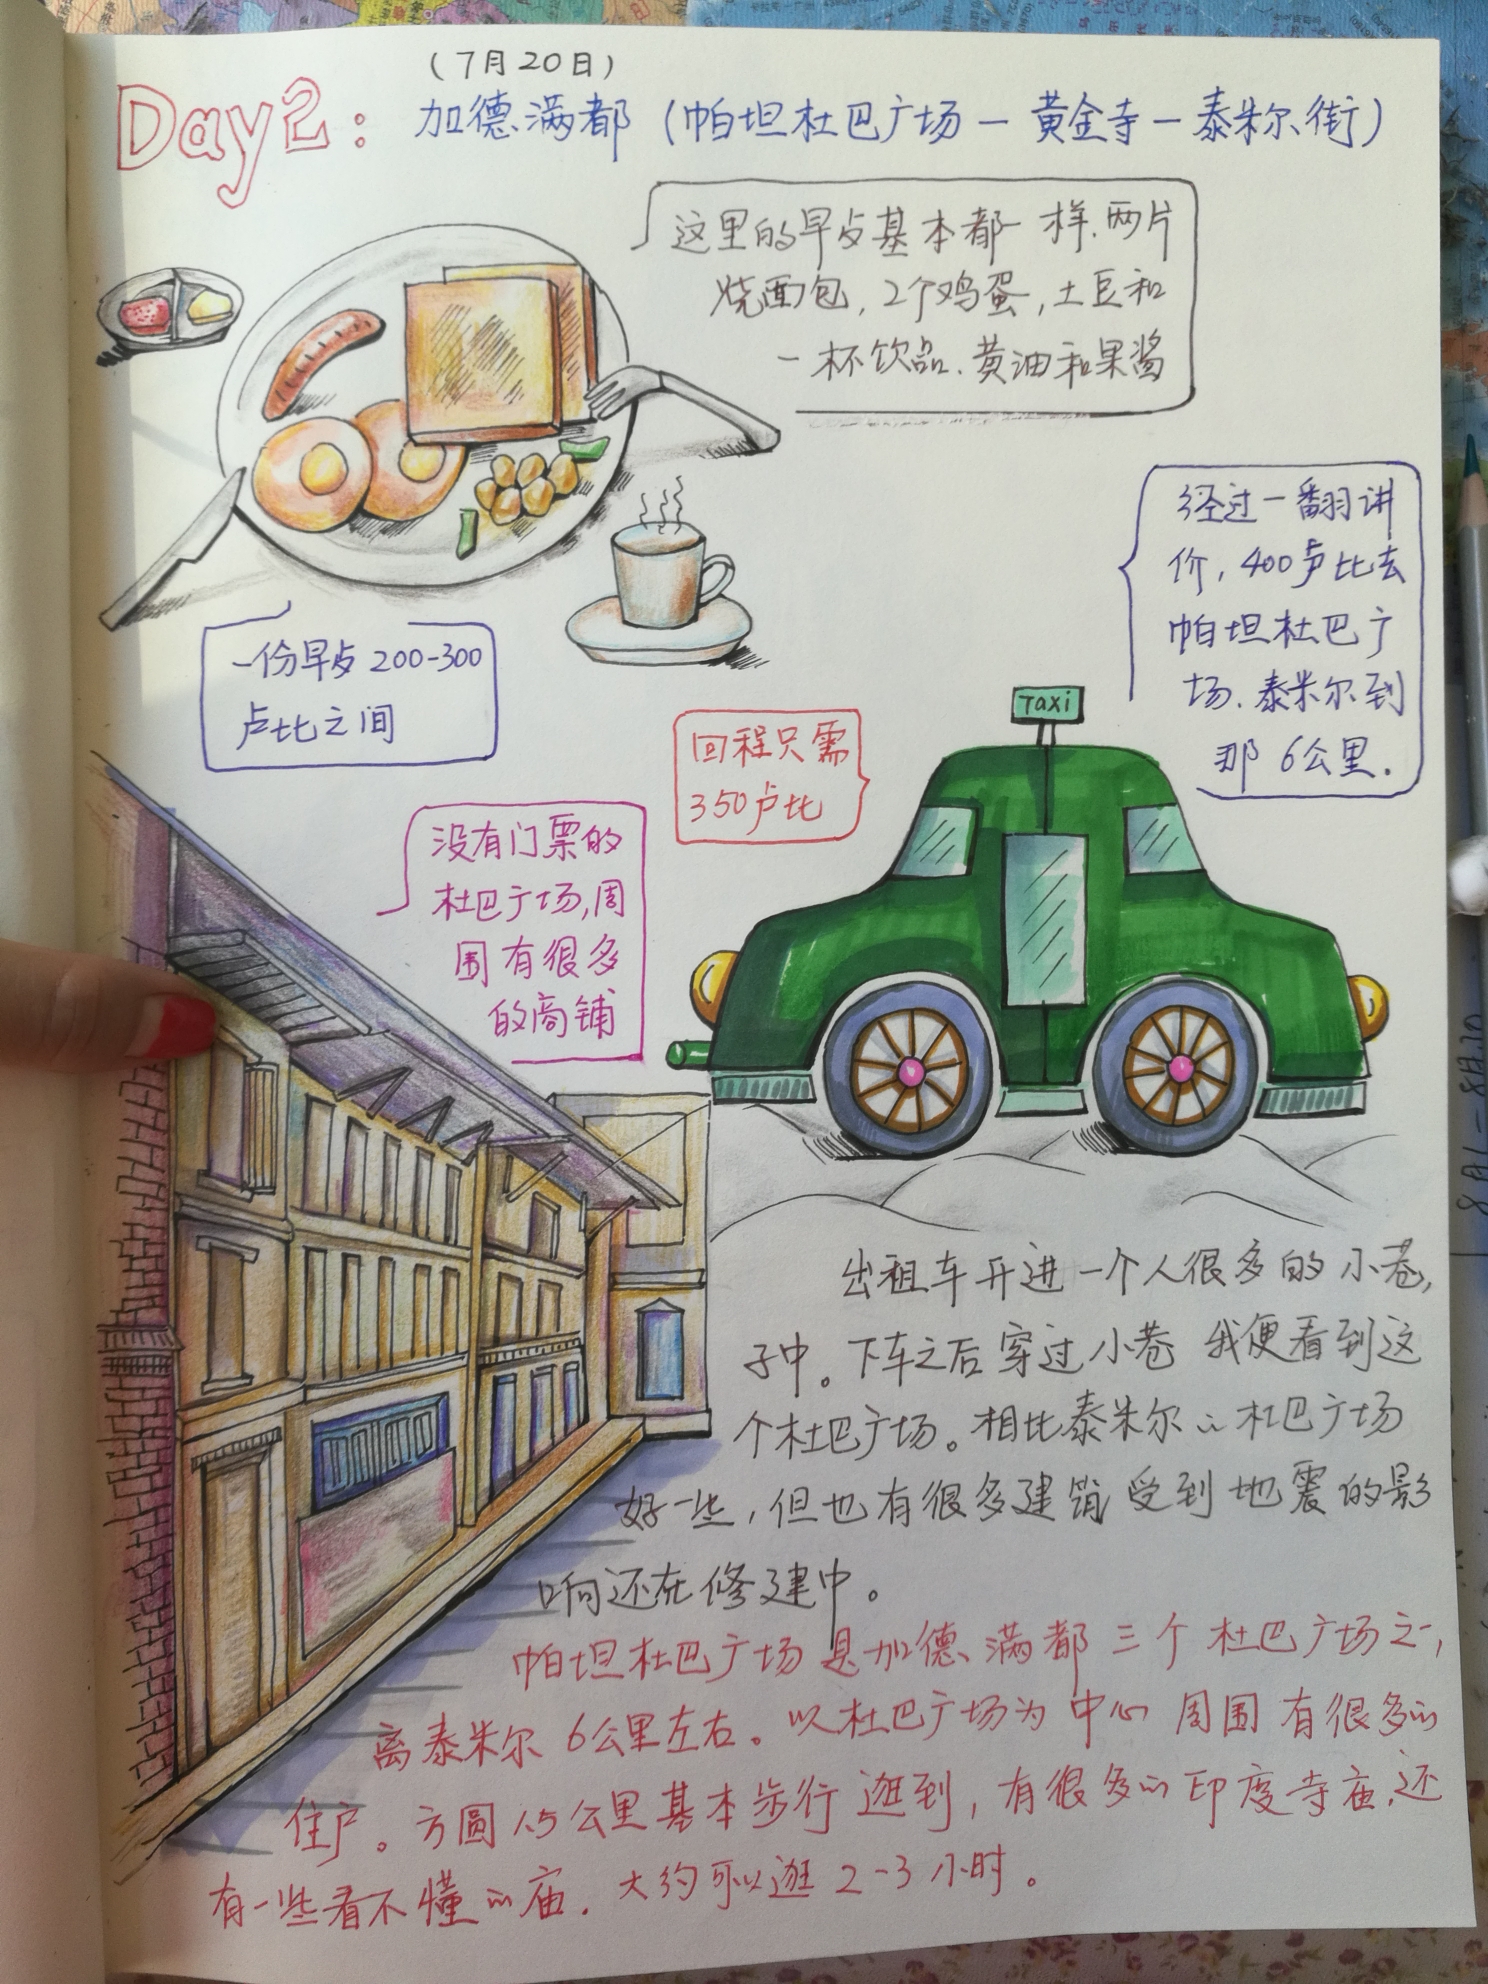 (7月20日)
Day2: 加德满都 (帕坦杜巴广场 — 黄金寺 — 泰米尔街)
这里的早点基本都一样、两片
烧面包, 2个鸡蛋, 土豆和
一杯饮品、黄油和果酱
一份早点 200-300
卢比之间
经过一翻讲
价, 400卢比去
帕坦杜巴广
场、泰米尔到
那 6公里.
Taxi
回程只需
350卢比
没有门票的
杜巴广场, 周
围有很多
的商铺
出租车开进一个人很多的小巷,
子中。下车之后穿过小巷 我便看到这
个杜巴广场。相比泰米尔的杜巴广场
好一些, 但也有很多建筑受到地震的影
响还在修建中。
帕坦杜巴广场是加德满都三个杜巴广场之一,
离泰米尔 6公里左右。以杜巴广场为中心 周围有很多的
住户。方圆1.5公里基本步行逛到, 有很多的印度寺庙、还
有一些看不懂的庙. 大约可以逛 2-3小时。
8月1-8月10